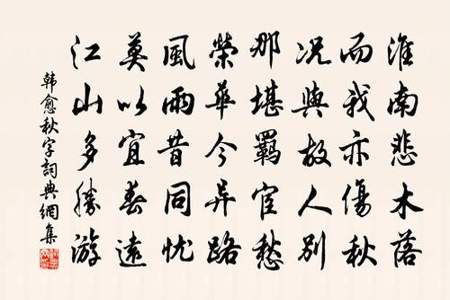 淮南悲木落
而我亦傷秋
况與故人別
那堪羈宦愁
榮華今异路
風雨昔同忧
莫以宜春遠
江山多勝游
韓愈秋字詞典網集